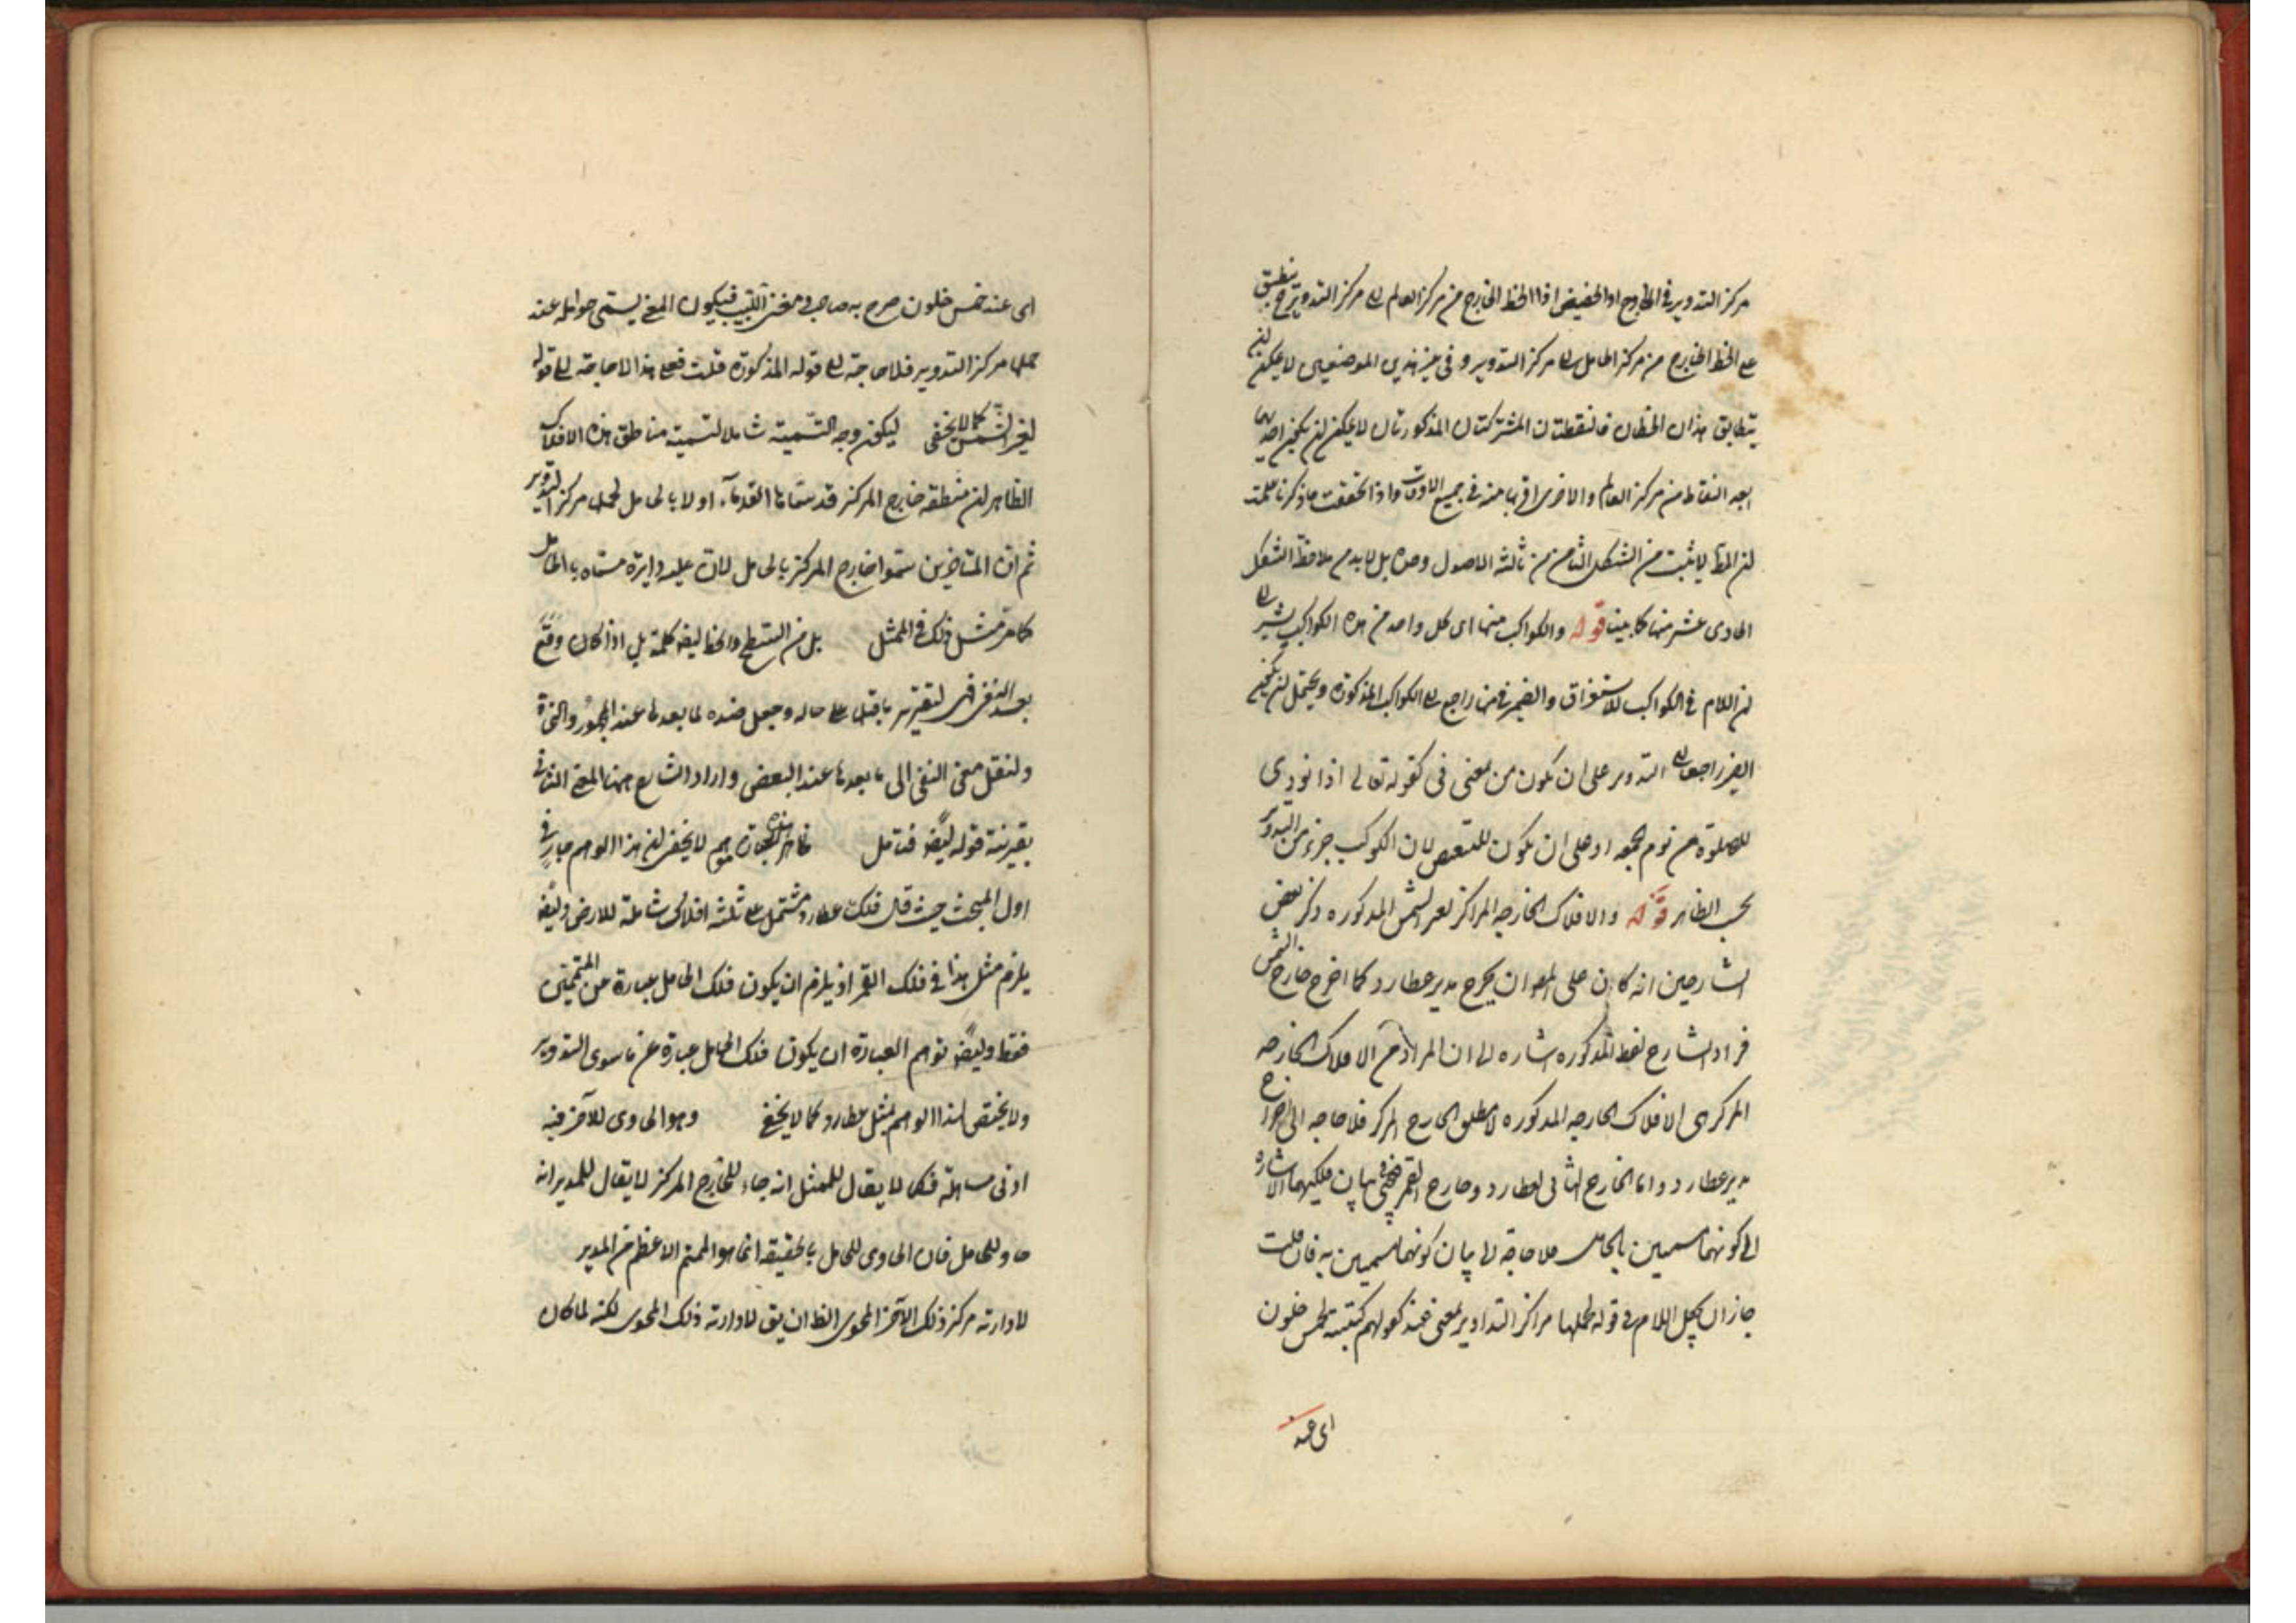 مركز التدوير فى الاوج او الحضيض اذا الخط الخارج من مركز العالم الى مركز التدوير ح ينطبق
على الخط الخارج من مركز الحامل الى مركز التدوير و فى غير هذين الموضعين لا يمكن ان
يتطابق هذان الخطان فالنقطتان المشتركتان المذكورتان لا يمكن ان يكون احديهما
ابعد النقاط من مركز العالم والاخرى اقربها منه فى جميع الاوقات واذا تحققت ما ذكرنا علمت
ان المط لا يثبت من الشكل الثامن من ثالثة الاصول وحده بل لا بد من ملاحظة الشكل
الحادى عشر منها كما بينا قوله والكواكب منها اى كل واحد من هذه الكواكب يشير الى
ان اللام فى الكواكب للاستغراق والضمير فى منها راجع الى الكواكب المذكورة ويحتمل ان يكون
الضمير راجعا الى التدوير على ان يكون من بمعنى فى كقوله تعالى اذا نودى
للصلوة من يوم الجمعه او على ان يكون للتبعيض لان الكوكب جزء من التدوير
بحسب الظاهر قوله والافلاك الخارجه المراكز لغير الشمس المذكوره ذكر بعض
الشارحين انه كان على المص ان يخرج مدير عطارد كما اخرج خارج الشمس
فزاد الشارح لفظ المذكوره اشاره الى ان المراد من الافلاك الخارجه
المركز هى الافلاك الخارجه المذكوره لا مطلق الخارج المركز فلا حاجه الى اخراج
مدير عطارد واما الخارج الثانى لعطارد وخارج القمر فيجئ فى بيان فلكيهما الاشاره
الى كونهما مسميين بالحامل فلا حاجة الى بيان كونهما مسميين به فان قلت
جاز ان يجعل اللام فى قوله لحملها مراكز التداوير بمعنى عند كقولهم كتبته لخمس خلون
اى عند
اى عند خمس خلون صرح به صاحب مغنى اللبيب فيكون المعنى يسمى حوامل عند
حملها مركز التدوير فلا حاجة الى قوله المذكورة قلت فعلى هذا لا حاجة الى قوله
لغير الشمس كما لا يخفى ليكون وجه التسمية شاملا لتسمية مناطق هذه الافلاك
الظاهر ان منطقة خارج المركز قد سماها القدماء اولا بالحامل لحملها مركز التدوير
ثم ان المتاخرين سموا خارج المركز بالحامل لان عليه دايرة مسماه بالحامل
كما مر مثل ذلك فى الممثل بل من السطح والخط ايضا كلمة بل اذا كان وقع
بعد النفى فهى لتقرير ما قبلها على حاله وجعل ضده لما بعدها عند الجمهور والنحاة
ولنقل معنى النفى الى ما بعدها عند البعض واراد الشارح ههنا المعنى الثانى
بقرينة قوله ايضا فتامل ظاهر هذه العبارة موهم لا يخفى ان هذا الوهم جار فى
اول المبحث حيث قال فلك عطارد مشتمل على ثلثة افلاك شاملة للارض وايضا
يلزم مثل هذا فى فلك القمر اذ يلزم ان يكون فلك الحامل عبارة عن المتممين
فقط وايضا توهم العبارة ان يكون فلك الحامل عبارة عن ما سوى التدوير
ولا يختص هذا الوهم بمثل عطارد كما لا يخفى وهو الحاوى للآخر فيه
ادنى مساهلة فكما لا يقال للممثل انه حاو للخارج المركز لا يقال للمدير انه
حاو للحامل فان الحاوى للحامل بالحقيقة انما هو المتمم الاعظم من المدير
لادارته مركز ذلك الآخر المحوى الظ ان يق لادارته ذلك المحوى لكنه لما كان